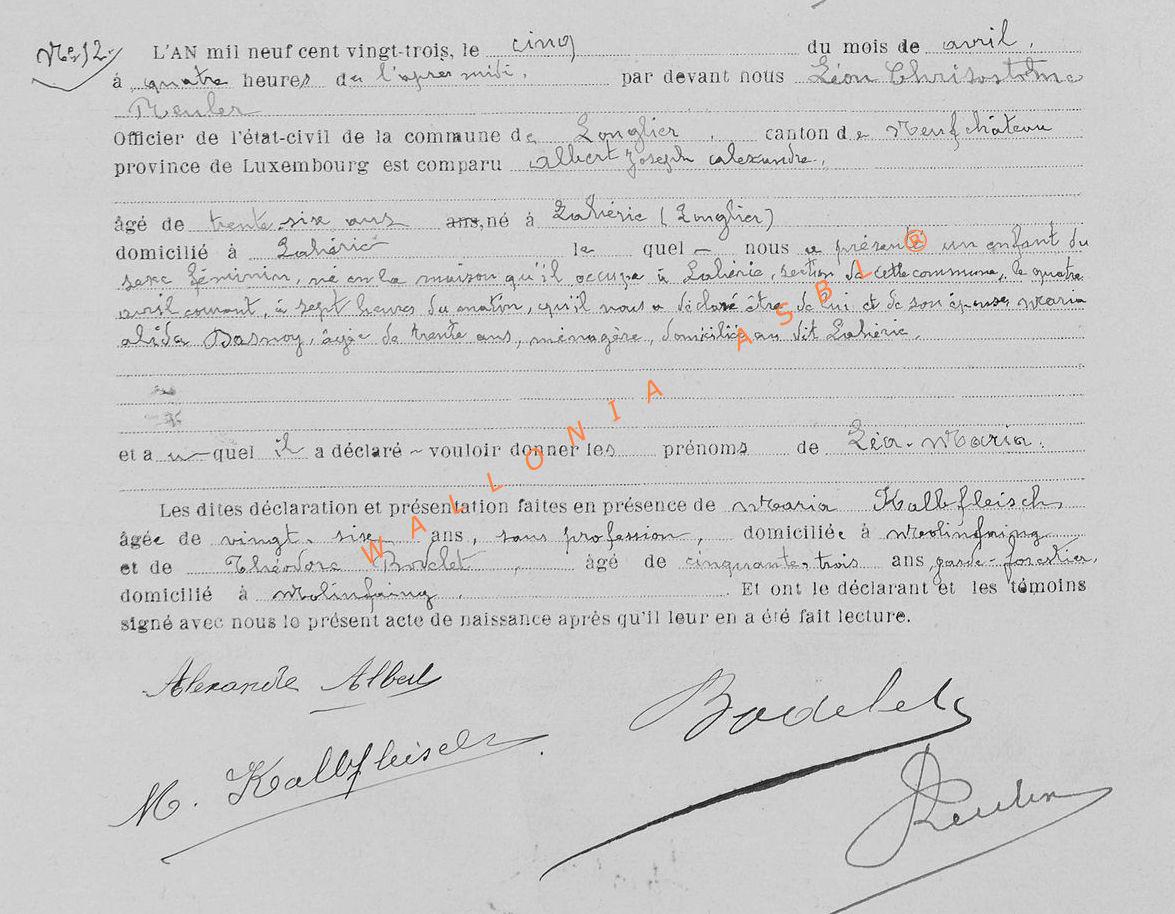 No 12.
L'AN mil neuf cent vingt-trois, le cinq du mois de avril,
à quatre heures de l'après midi, par devant nous Léon Chrisostôme
Reuler
Officier de l'état-civil de la commune de Longlier, canton de Neufchâteau
province de Luxembourg est comparu Albert Joseph Alexandre,
âgé de trente-six ans ans, né à Lahérie (Longlier)
domicilié à Lahérie lequel nous a présenté un enfant du
sexe féminin, né en la maison qu'il occupe à Lahérie, section de cette commune, le quatre
avril courant, à sept heures du matin, qu'il nous a déclaré être de lui et de son épouse Maria
Alida Dasnoy, âgée de trente ans, ménagère, domiciliée au dit Lahérie.
et auquel il a déclaré vouloir donner les prénoms de Léa-Maria.
Les dites déclaration et présentation faites en présence de Maria Kalbfleisch
âgée de vingt-six ans, sans profession, domiciliée à Molinfaing
et de Théodore Bodelet, âgé de cinquante-trois ans, garde-forestier,
domicilié à Molinfaing. Et ont le déclarant et les témoins
signé avec nous le présent acte de naissance après qu'il leur en a été fait lecture.
Alexandre Albert
Bodelet
M. Kalbfleisch
WALLONIA ASBL ®